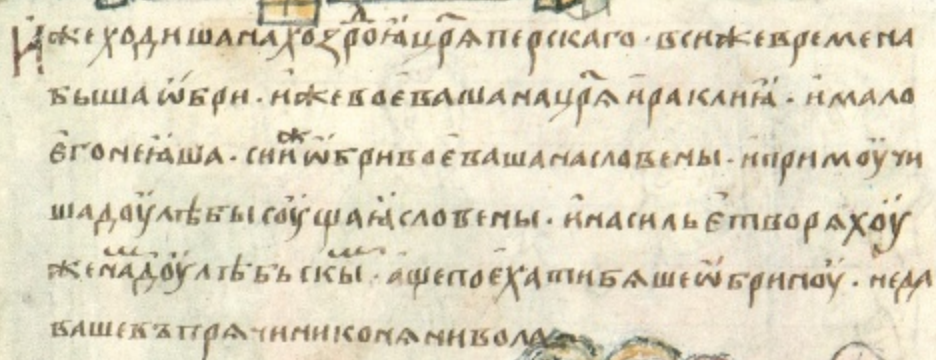 Иже ходиша на хозр҃оꙗ цр҃ѧ перскаго · в си же времена
быша ѡбри · иже воеваша на цр҃ѧ ираклиꙗ · и мало
его не ꙗша · сии ж ѡбри воеваша на словены · и примꙋчи
ша дꙋлѣбы сꙋщаꙗ словены · и насилье творѧхꙋ
женам дꙋлѣбьскым · аще поехати бѧше ѡбринꙋ · не да
ваше въпрѧчи ни конѧ ни вола